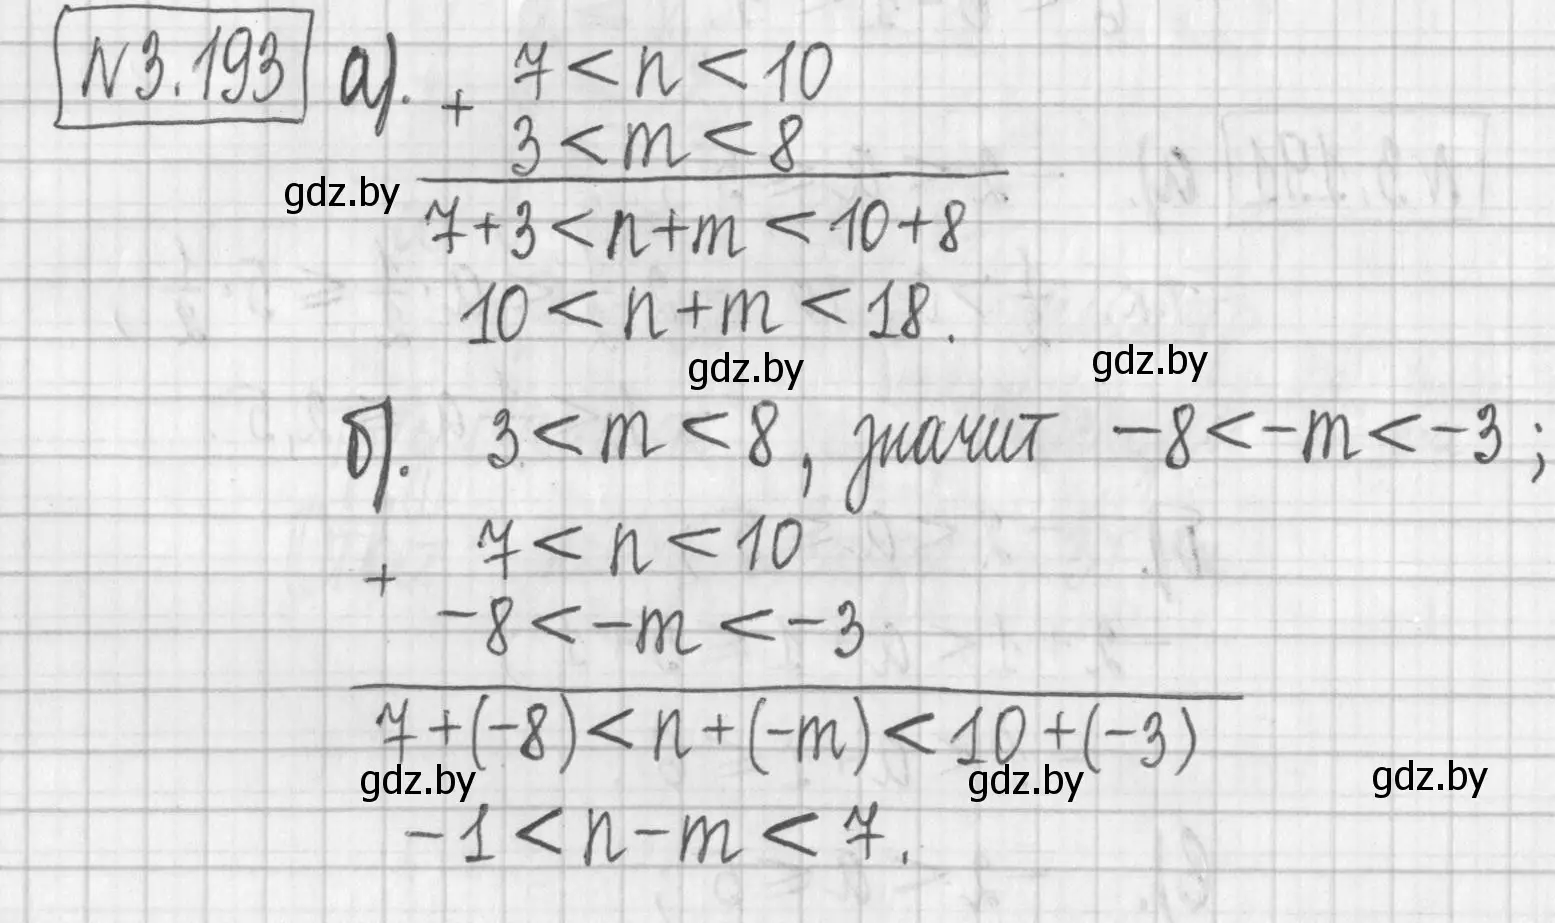 N3.193 а). 7 < n < 10
+
3 < m < 8
gdz.by
7+3 < n+m < 10+8
10 < n+m < 18.
gdz.by gdz.by
б). 3 < m < 8, значит -8 < -m < -3;
7 < n < 10
+
-8 < -m < -3
7+(-8) < n+(-m) < 10+(-3)
gdz.by gdz.by gdz.by
-1 < n-m < 7.